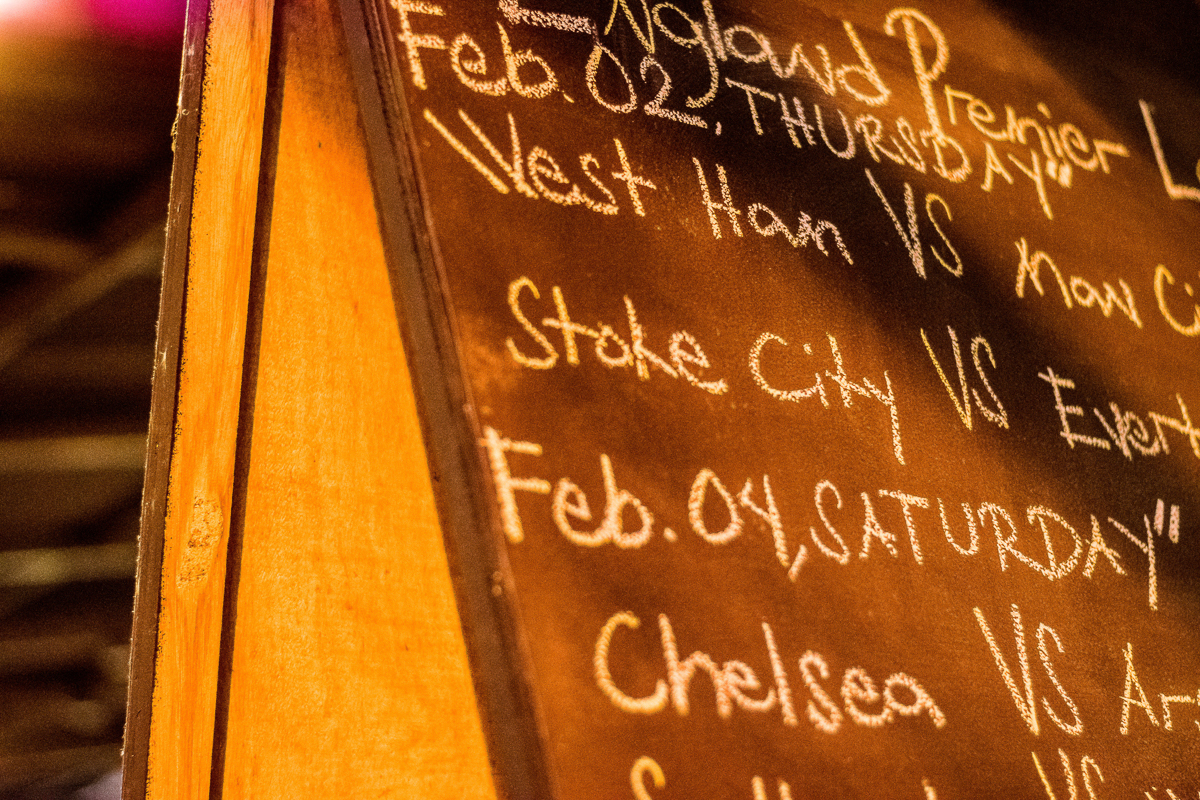 England Premier L
Feb. 02, THURSDAY"
West Ham VS man Ci
Stoke City VS Evert
Feb. 04, SATURDAY"
Chelsea VS Ar
VS